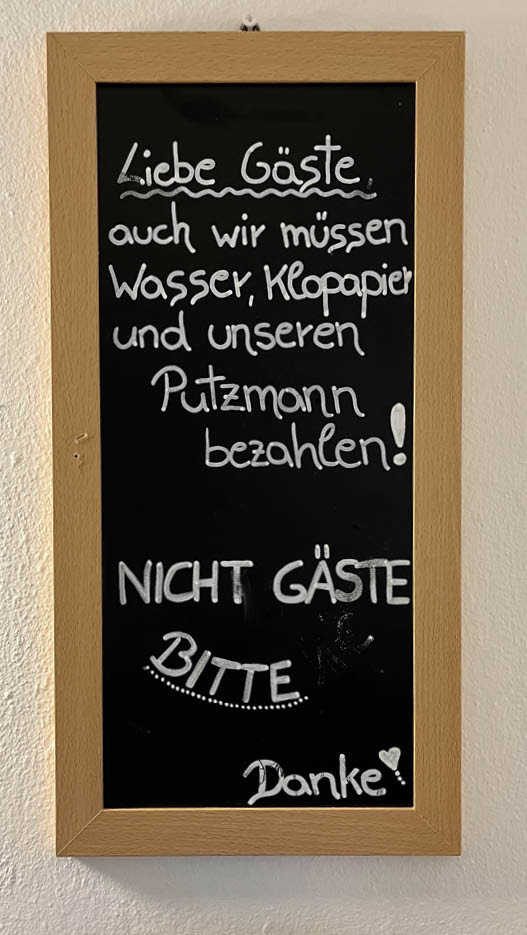 Liebe Gäste,
auch wir müssen
Wasser, Klopapier
und unseren
Putzmann
bezahlen!
NICHT GÄSTE
BITTE
Danke